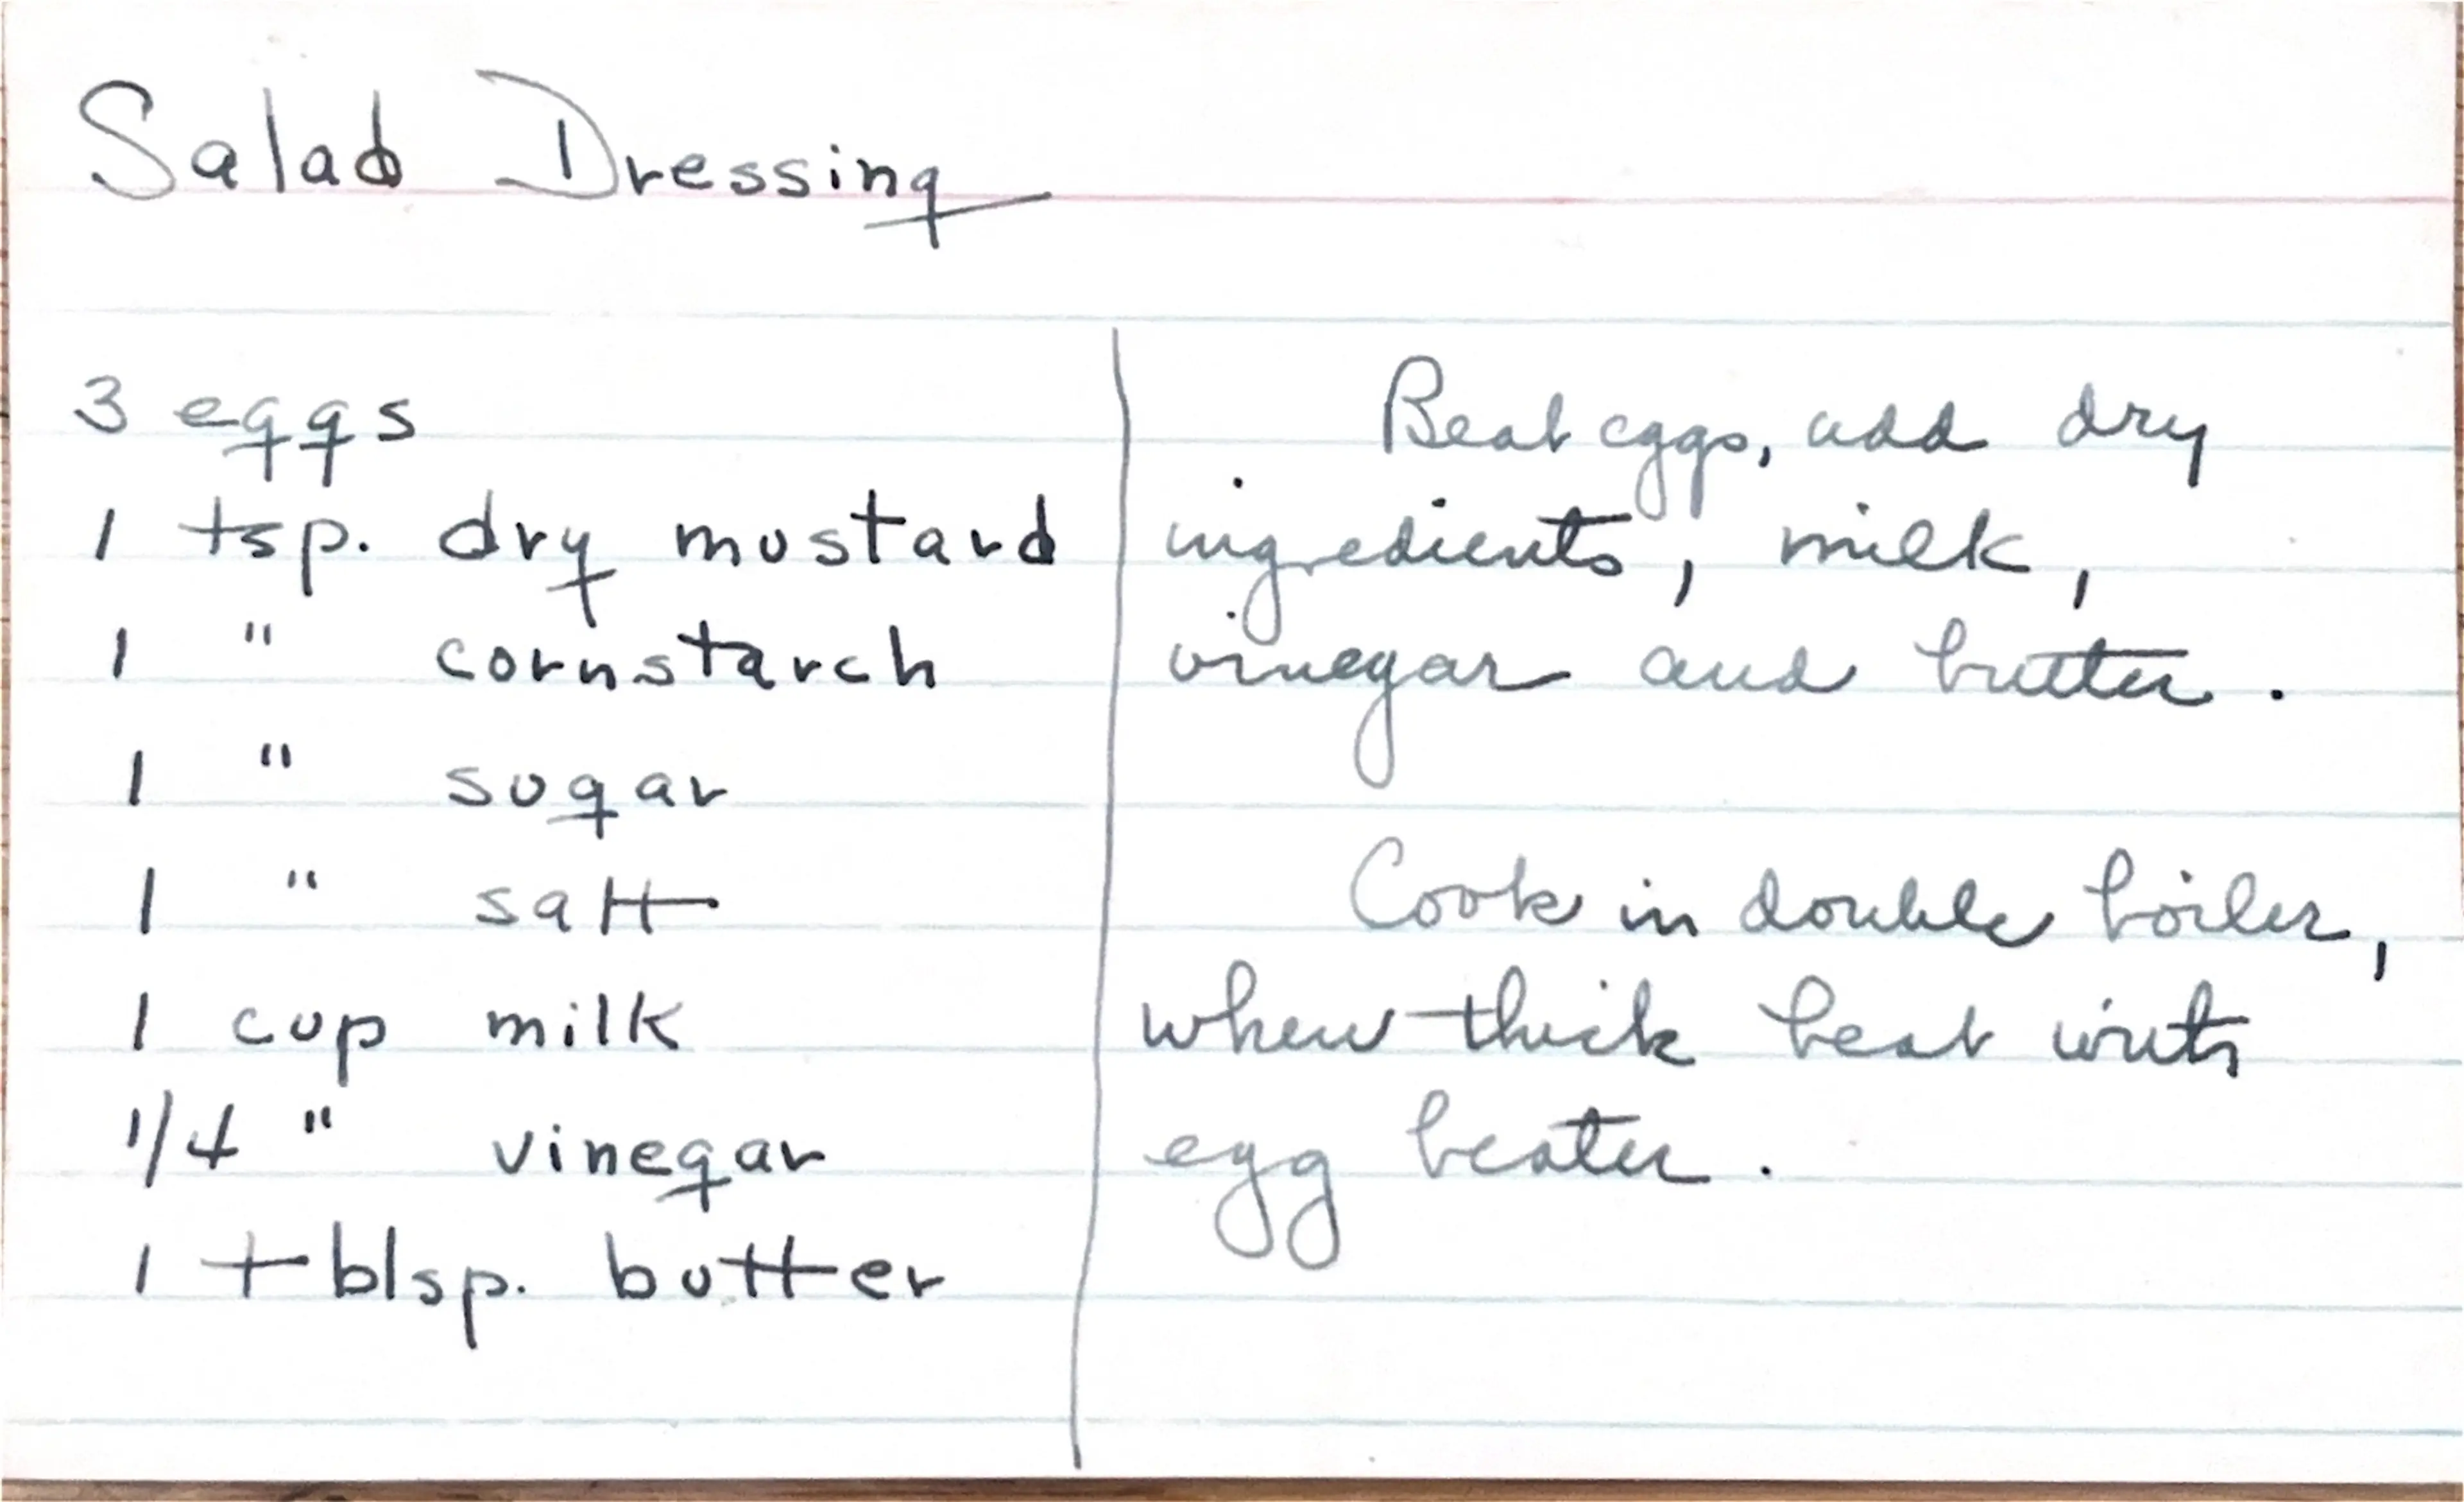 Salad Dressing
3 eggs
1 tsp. dry mustard
1 " cornstarch
1 " sugar
1 " salt
1 cup milk
1/4 " vinegar
1 tblsp. butter
Beat eggs, add dry
ingredients, milk,
vinegar and butter.
Cook in double boiler,
when thick beat with
egg beater.